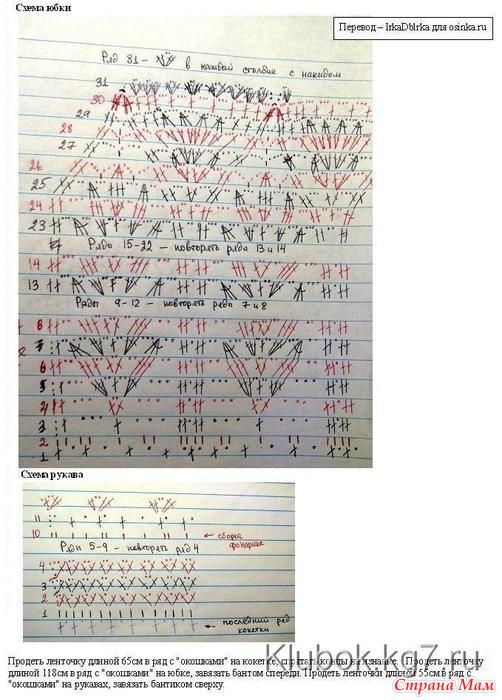 Схема юбки
Перевод – IrkaDblrka для osinka.ru
Ряд 31 - в каждый столбик с накидом
31
30
29
28
27
26
25
24
23
Ряды 15-22 - повторять ряды 13 и 14
14
13
Ряды 9-12 - повторять ряды 7 и 8
8
7
6
5
4
3
2
1
Схема рукава
11
10
сборка
фонарика
Ряды 5-9 - повторять ряд 4
4
3
2
1
последний ряд
кокетки
Продеть ленточку длиной 65см в ряд с "окошками" на кокетке, спрятать концы на изнанке. Продеть ленточку
длиной 118см в ряд с "окошками" на юбке, завязать бантом спереди. Продеть ленточки длиной 55см в ряд с
"окошками" на рукавах, завязать бантиком сверху.
Klubok.kg7.ru
Страна Мам